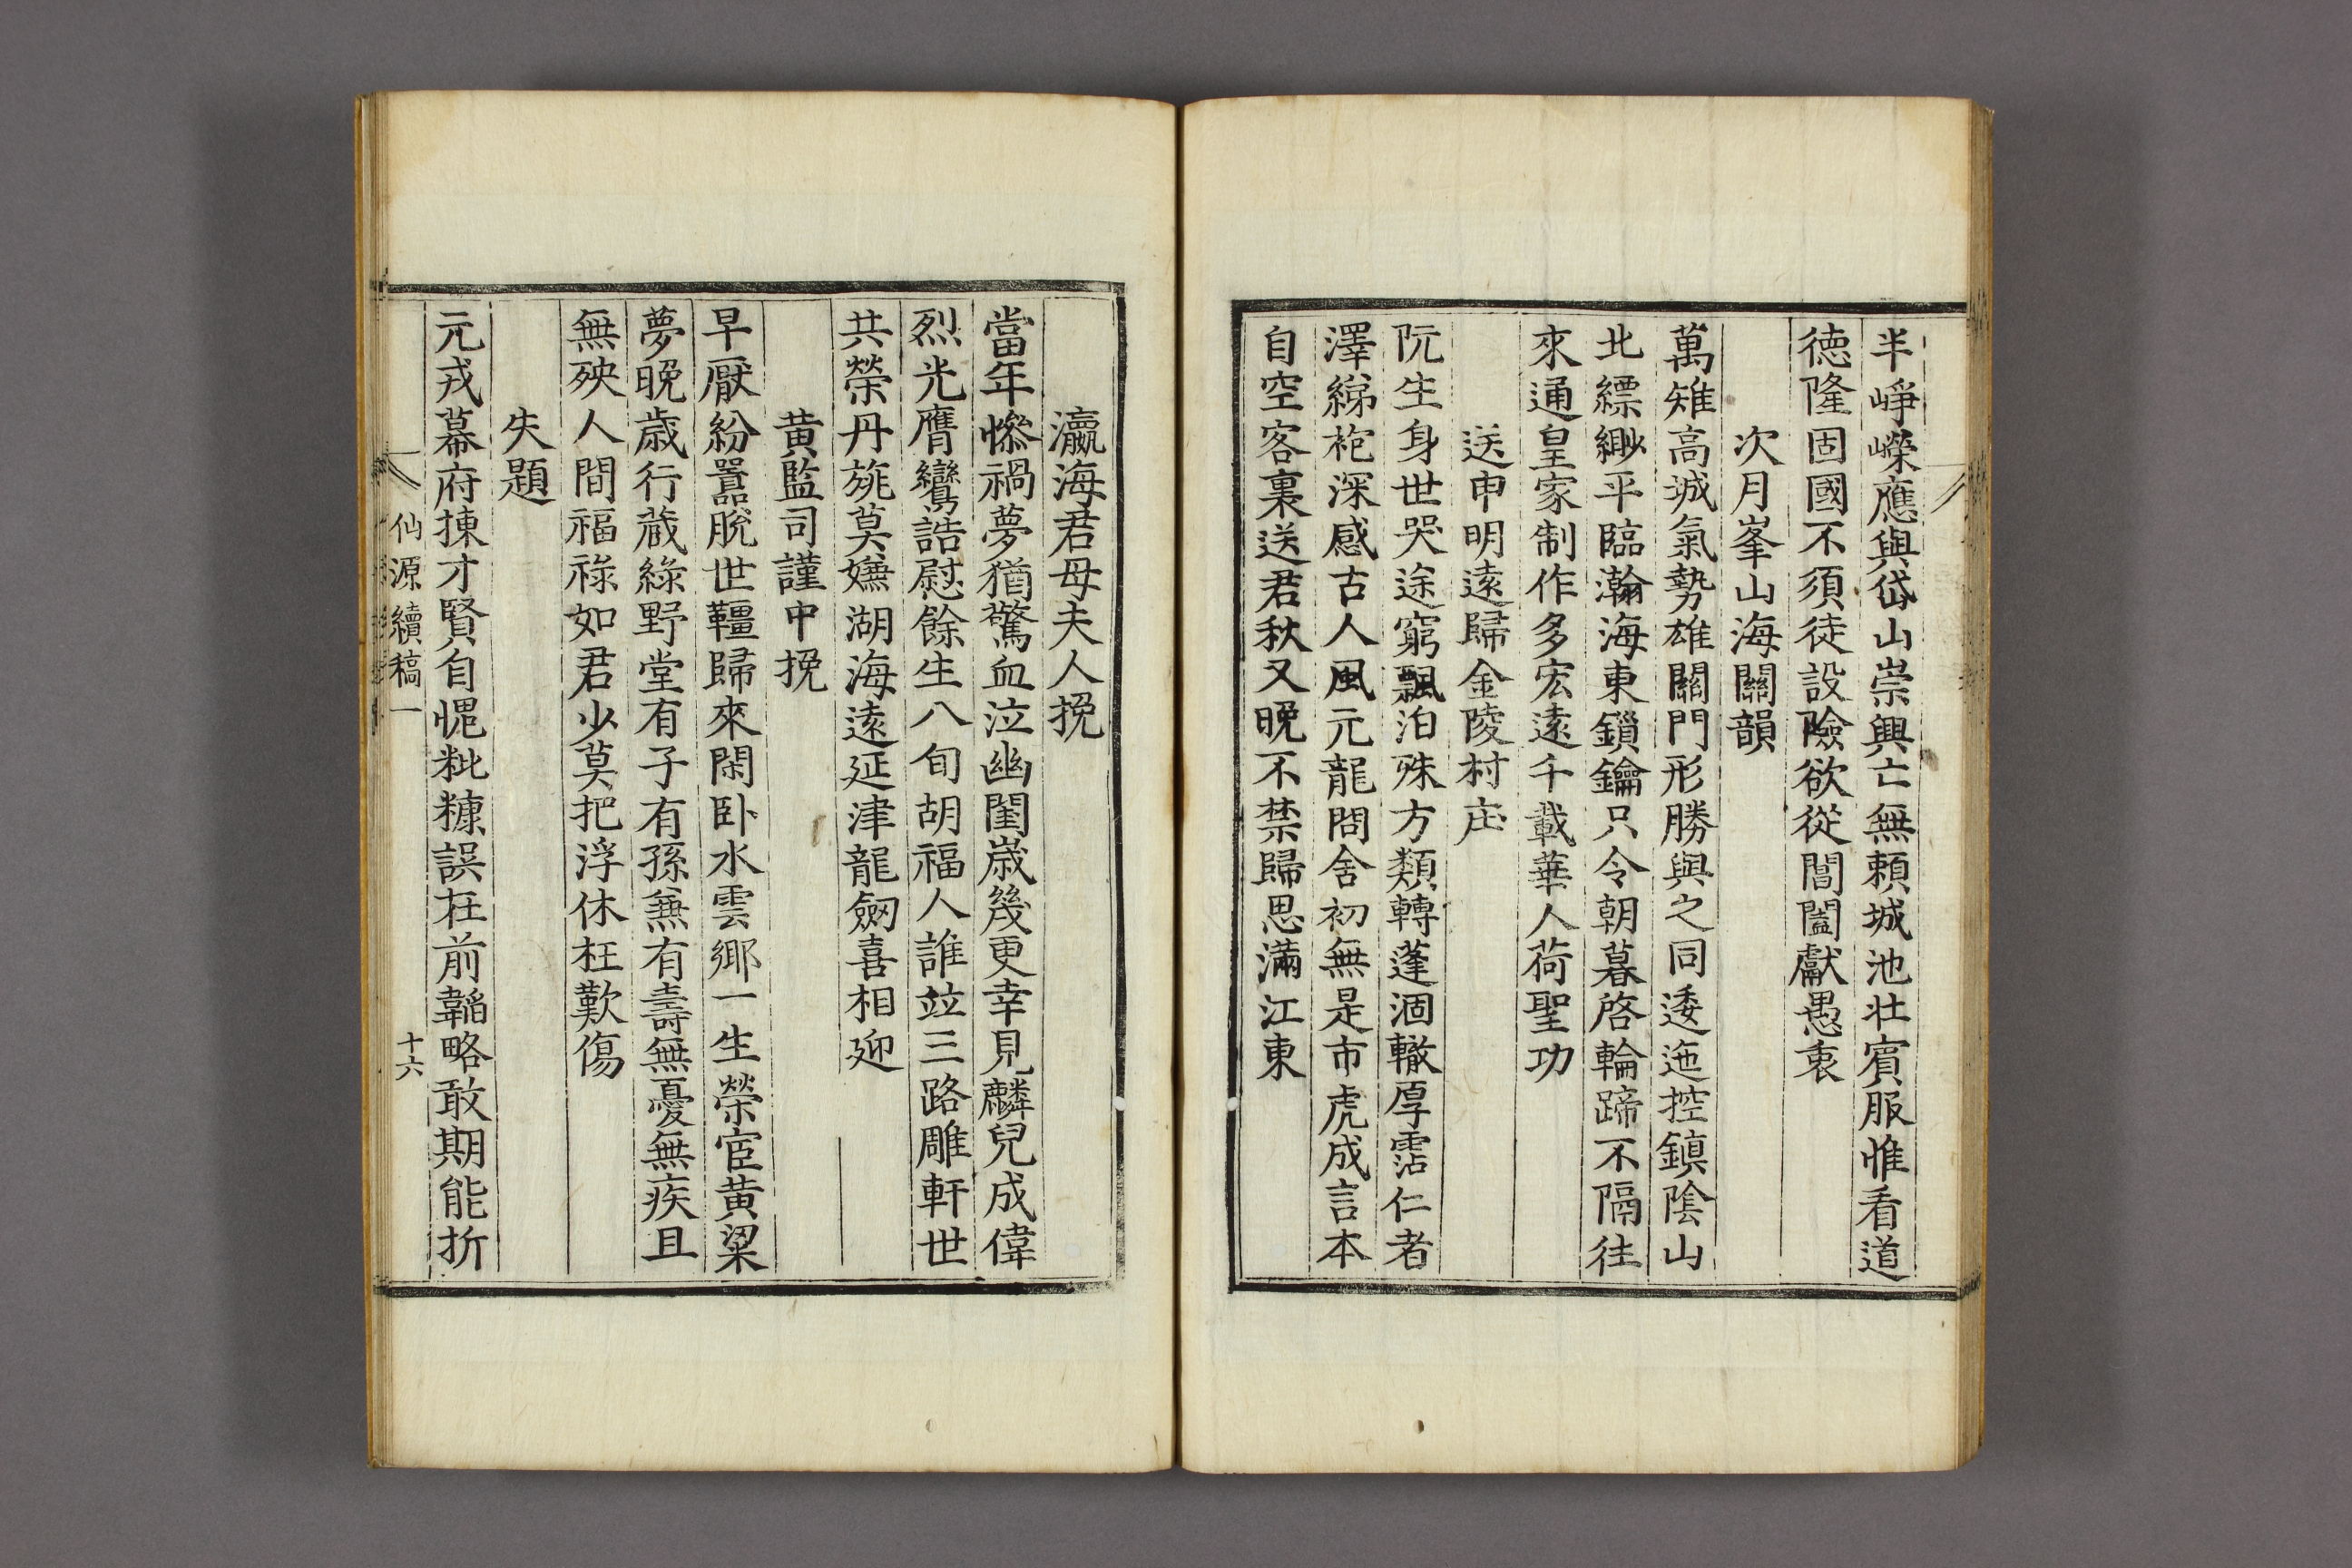 半崢嶸應與岱山崇興亡無賴城池壮賓服惟看道
德隆固國不須徒設險欲從閶闔獻愚衷
次月峯山海關韻
萬雉高城氣勢雄關門形勝與之同逶迤控鎮陰山
北縹緲平臨瀚海東鎖鑰只令朝暮啓輪蹄不隔往
來通皇家制作多宏遠千載華人荷聖功
送申明遠歸金陵村庄
阮生身世哭途窮飄泊殊方類轉蓬涸轍厚霑仁者
澤綈袍深感古人風元龍問舍初無是市虎成言本
自空客裏送君秋又晚不禁歸思滿江東
瀛海君母夫人挽
當年慘禍夢猶驚血泣幽閨歲幾更幸見麟兒成偉
烈光膺鸞誥慰餘生八旬胡福人誰竝三路雕軒世
共榮丹旐莫嫌湖海遠延津龍劒喜相迎
黄監司謹中挽
早厭紛囂脫世韁歸來閑卧水雲鄉一生榮宦黄粱
夢晚歲行藏綠野堂有子有孫兼有壽無憂無疾且
無殃人間福祿如君少莫把浮休枉歎傷
失題
元戎幕府揀才賢自愧粃糠誤在前韜略敢期能折
仙源續稿一
十六